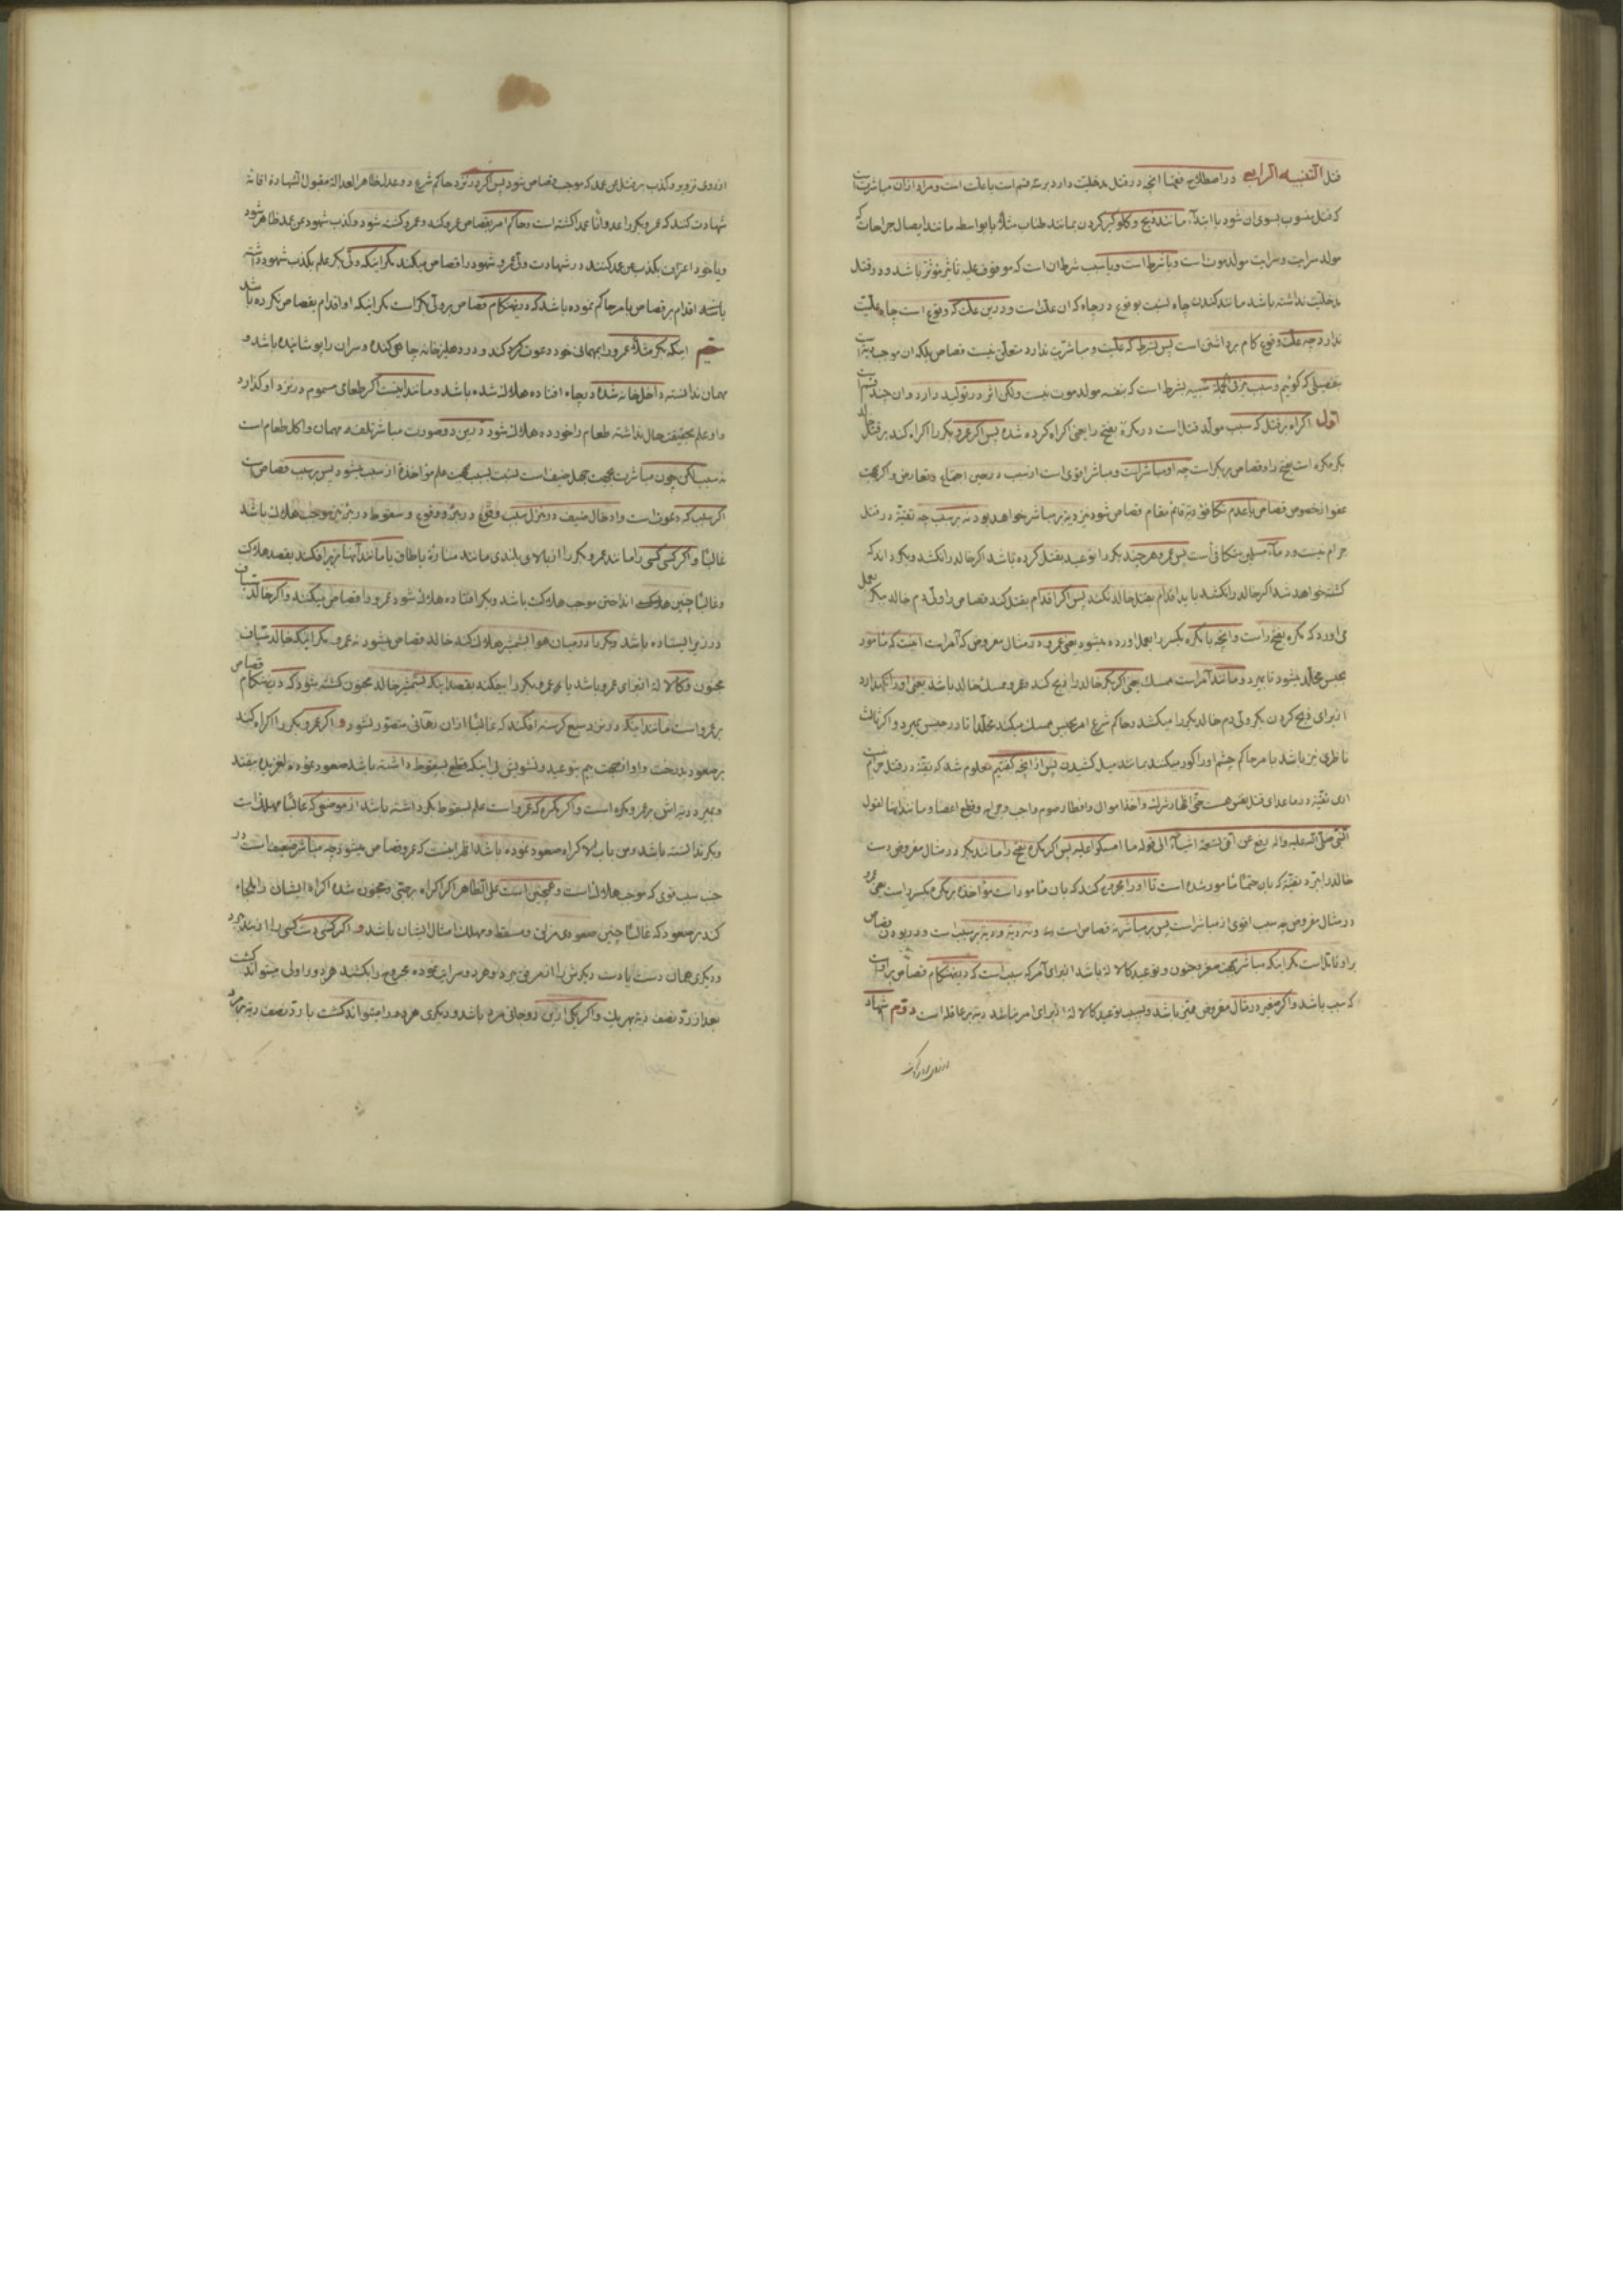 قتل التنبیه الرابع در اصطلاح فقها انچه در قتل مدخلیت دارد بر سه قسم است یا علت است و مراد ازان مباشرت است
که قتل منسوب بسوی ان شود یا ابتداء مانند ذبح و کلوکیر کردن بمانند طناب مثلاً یا بواسطه مانند ایصال جراحات که
مولد سرایت و سرایت مولد موت است و یا شرط است و یا سبب شرط ان است که موقوف علیه تاثیر مؤثر باشد و در قتل
مدخلیت نداشته باشد مانند کندن چاه نسبت بوقوع در چاه که ان علت است و درین علت که وقوع است چاه علیت
ندارد چه علت وقوع کام برداشتن است پس بشرط که علیت و مباشرت ندارد متعلق نیست قصاص بلکه ان موجب دیة است
بتفصیلی که کوئیم و سبب فی الجمله شبیه بشرط است که بنفسه مولد موت نیست ولکن اثر در تولید دارد و ان چند قسم است
اول اکراه بر قتل که سبب مولد قتل است در مکره بفتح را یعنی اکراه کرده شده پس اکر عمرو بکر را اکراه کند بر قتل خالد
بکر مکره است بفتح را و قصاص بر بکر است چه او مباشر است و مباشر اقوی است از سبب در حین اجتماع و تعارض و اکر بجهت
عفو از خصوص قصاص یا عدم تکافؤ دیة قائم مقام قصاص شود نیز دیة بر مباشر خواهد بود نه بر سبب چه تقیة در قتل
حرام نیست و دماء مسلمین متکافی است پس عمرو هرچند بکر را توعید بقتل کرده باشد اکر خالد را نکشد و بکر داند که
کشته خواهد شد اکر خالد را نکشد باید اقدام بقتل خالد نکند پس اکر اقدام بقتل کند قصاص را ولی دم خالد ببکر بعمل
می اورد که مکره بفتح راست و انچه با مکره بکسر را بعمل اورده میشود یعنی عمرو در مثال مفروض که آمر است اینست که مامور
بحبس مخلد میشود تا بمیرد و مانند آمر است ممسک یعنی اکر بکر خالد را ذبح کند و عمرو ممسک خالد باشد یعنی او را نکهدارد
از برای ذبح کردن بکر ولی دم خالد بکر را میکشد و حاکم شرع امر بحبس ممسک میکند مخلداً تا در حبس بمیرد و اکر ثالث
ناظری نیز باشد بامر حاکم چشم او را کور میکنند بمانند میل کشیدن پس از انچه کفتیم معلوم شد که تقیة در قتل حرام نیست
اری تقیة در ماعدای قتل نفس هست حتی اظهار شرک و اخذ اموال و افطار صوم واجب و جراح و قطع اعضا و مانند اینها لقول
النبی صلی الله علیه واله رفع عن امتی تسعة اشیاء الی قوله ما استکرهوا علیه پس اکر مکره بفتح را مانند بکر در مثال مفروض دست
خالد را ببرد تقیة که بان حتماً مامور شده است تا او را مجروح کند که بان مامور است مؤاخذه بر مکره بکسر راست یعنی عمرو
در مثال مفروض چه سبب اقوی از مباشر است پس بر مباشر نه قصاص است و نه دیة و دیة بر سبب است و در بودن قصاص
بر او تامل است مکر اینکه مباشر بجهت صغر و جنون و توعید کالالة باشد از برای آمر که سبب است که درینهنکام قصاص بر او است
که سبب باشد و اکر صغیر در مثال مفروض ممیز باشد و بسبب توعید کالالة از برای آمر نباشد دیة بر عاقله است دویم شهادت
از روی تزویر
از روی تزویر و کذب بر قتل من عمد که موجب قصاص شود پس اکر در نزد حاکم شرع دو عدل ظاهر العدالة مقبول الشهادة اقامة
شهادت کنند که عمرو بکر را عدواناً عمداً کشته است و حاکم امر بقصاص عمرو کند و عمرو کشته شود و کذب شهود من عمد ظاهر شود
و یا خود اعتراف بکذب من عمد کنند در شهادت ولی عمرو شهود را قصاص میکند مکر اینکه ولی بکر علم بکذب شهود داشته
باشد اقدام بر قصاص بامر حاکم نموده باشد که درینهنکام قصاص بر ولی بکر است مکر اینکه او اقدام بقصاص نکرده باشد
سیم اینکه بکر مثلاً عمرو را بمهمانی خود دعوت کند و در دهلیز خانه چاهی کنده و سر ان را پوشانیده باشد و
مهمان ندانسته داخل خانه شده در چاه افتاده هلاک شده باشد و مانند اینست اکر طعامی مسموم در نزد او کذارد
و او علم بحقیقت حال نداشته طعام را خورده هلاک شود درین دو صورت مباشر تلف مهمان و اکل طعام است
نه سبب لکن چون مباشرت بجهت جهل ضعیف است نسبت بسبب بجهت علم مؤاخذه از سبب میشود پس بر سبب قصاص است
اکر سبب که دعوت است و ادخال ضیف در منزل سبب وقوع در بئر و وقوع و سقوط در بئر نیز موجب هلاک باشد
غالباً و اکر کسی کسی را مانند عمرو بکر را از بالای بلندی مانند منارة یا طاق یا مانند آنها بزیر افکند بقصد هلاکت
و غالباً چنین انداختن موجب هلاکت باشد و بکر افتاده هلاک شود عمرو را قصاص میکنند و اکر خالد سیاف
در زیر ایستاده باشد و بکر را در میان هوا بشمشیر هلاک کند خالد قصاص میشود نه عمرو مکر اینکه خالد سیاف
مجنون و کالالة از برای عمرو باشد یا عمرو بکر را بیفکند بقصد اینکه بشمشیر خالد مجنون کشته شود که درینهنکام قصاص
بر عمرو است مانند اینکه در نزد سبع کرسنه افکند که غالباً ازان رهائی متصور نشود و اکر عمرو بکر را اکراه کند
بر صعود بدرخت و او از جهت بیم توعید و تشویش بی اینکه قطع بسقوط داشته باشد صعود نموده لغزیده بیفتد
و بمیرد دیة اش بر عمرو مکره است و اکر مکره که عمرو است علم بسقوط بکر داشته باشد از موضعی که غالباً مهلک است
و بکر ندانسته باشد و من باب الاکراه صعود نموده باشد اظهر اینست که عمرو قصاص میشود چه مباشر ضعیف است در
جنب سبب قوی که موجب هلاک است و همچنین است علی الظاهر اکر اکراه بر صبی و مجنون شده اکراه ایشان را ملجاء
کند بر صعود که غالباً چنین صعودی مزلق و مسقط و مهلک امثال ایشان باشد و اکر کسی دست کسی را از بند برد
و دیکری همان دست یا دست دیکرش را از مرفق ببرد و هر دو سرایت نموده مجروح را بکشند هر دو را ولی میتواند کشت
بعد از رد نصف دیة بهریک و اکر یکی ازین دو جانی مرد باشد و دیکری هر دو را میتواند کشت با رد نصف دیة بمرد